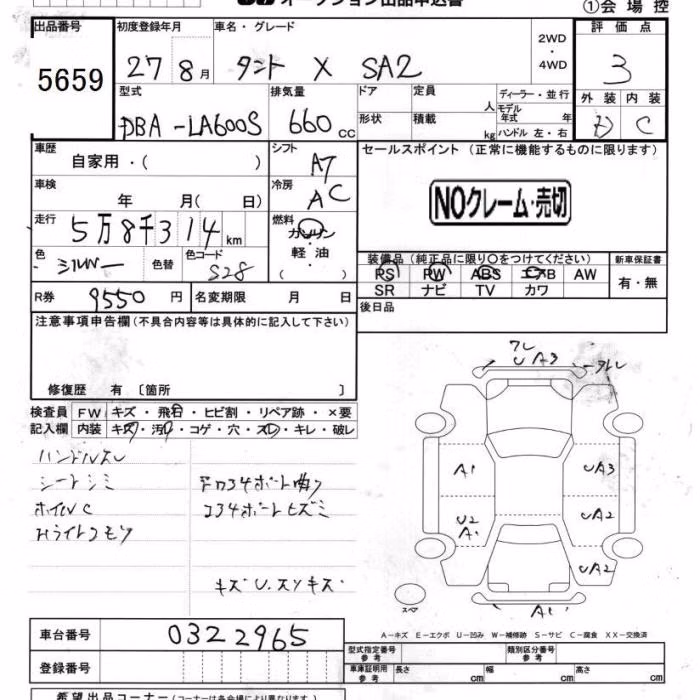 オークション出品申込書
①会場控
出品番号
5659
初度登録年月
27 8月
車名・グレード
タント X SA2
2WD
・
4WD
評価点
3
型式
DBA-LA600S
排気量
660 CC
ドア
定員
人
ディーラー・並行
モデル年式 年
形状
積載
kg
ハンドル 左・右
外装 内装
D C
車歴
自家用・( )
シフト
A7
セールスポイント (正常に機能するものに限ります)
NOクレーム・売切
車検
年 月( 日)
冷房
AC
走行
5万8千314 km
燃料
ガソリン
軽油
( )
色
シルバー
色替
色コード
S28
装備品(純正品に限り〇をつけてください)
PS PW ABS エアB AW
SR ナビ TV カワ
新車保証書
有・無
R券
9550 円
名変期限 月 日
後日品
注意事項申告欄(不具合内容等は具体的に記入して下さい)
修復歴 有 〔箇所 〕
検査員
記入欄
FW キズ・飛石・ヒビ割・リペア跡・×要
内装 キズ・汚れ・コゲ・穴・スレ・キレ・破レ
ハンドルスレ
シートシミ
ホイルC
Hライトクモリ
キズU.スリキズ
ワレ
UA3
A1
UA3
U2
A1
UA2
UA2
A1
スペア
A-キズ E-エクボ U-凹み W-補修跡 S-サビ C-腐食 XX-交換済
車台番号
0322965
登録番号
型式指定番号
参考
類別区分番号
参考
車庫証明用
参考
長さ cm 幅 cm 高さ cm
希望出品コーナー(コースは各会場により異なります。)